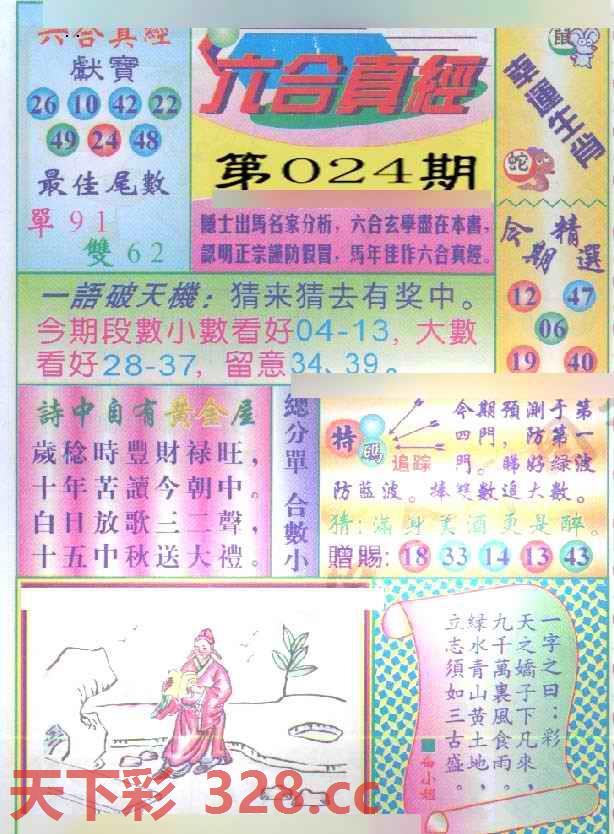 六合真經
獻寶
26 10 42 22
49 24 48
最佳尾數
單 9 1
雙 6 2
六合真經
第024期
隱士出馬名家分析，六合玄學盡在本書，
認明正宗謹防假冒，馬年佳作六合真經。
鼠
幸運生肖
蛇
今期精選
12 47
06
19 40
一語破天機：猜来猜去有奖中。
今期段數小數看好04-13，大數
看好28-37，留意34、39。
詩中自有黃金屋
歲稔時豐財禄旺，
十年苦讀今朝中。
白日放歌三二聲，
十五中秋送大禮。
總分單 合數小
特碼
追踪
今期預測于第
四門，防第一
門。睇好绿波
防藍波。捧雙數追大數。
猜：滿身美酒更是醉。
贈賜：18 33 14 13 43
一字之曰：彩
天之嬌子下凡來，
九千萬裏風食雨，
緑水青山黄土地，
立志須如三古盛。
天下彩 328.cc